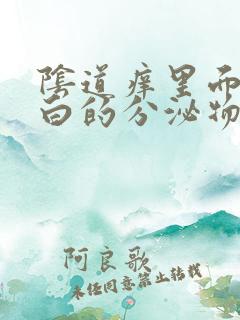 陰道痒里而
白的分泌物
阿良歌
未经同意禁止转载